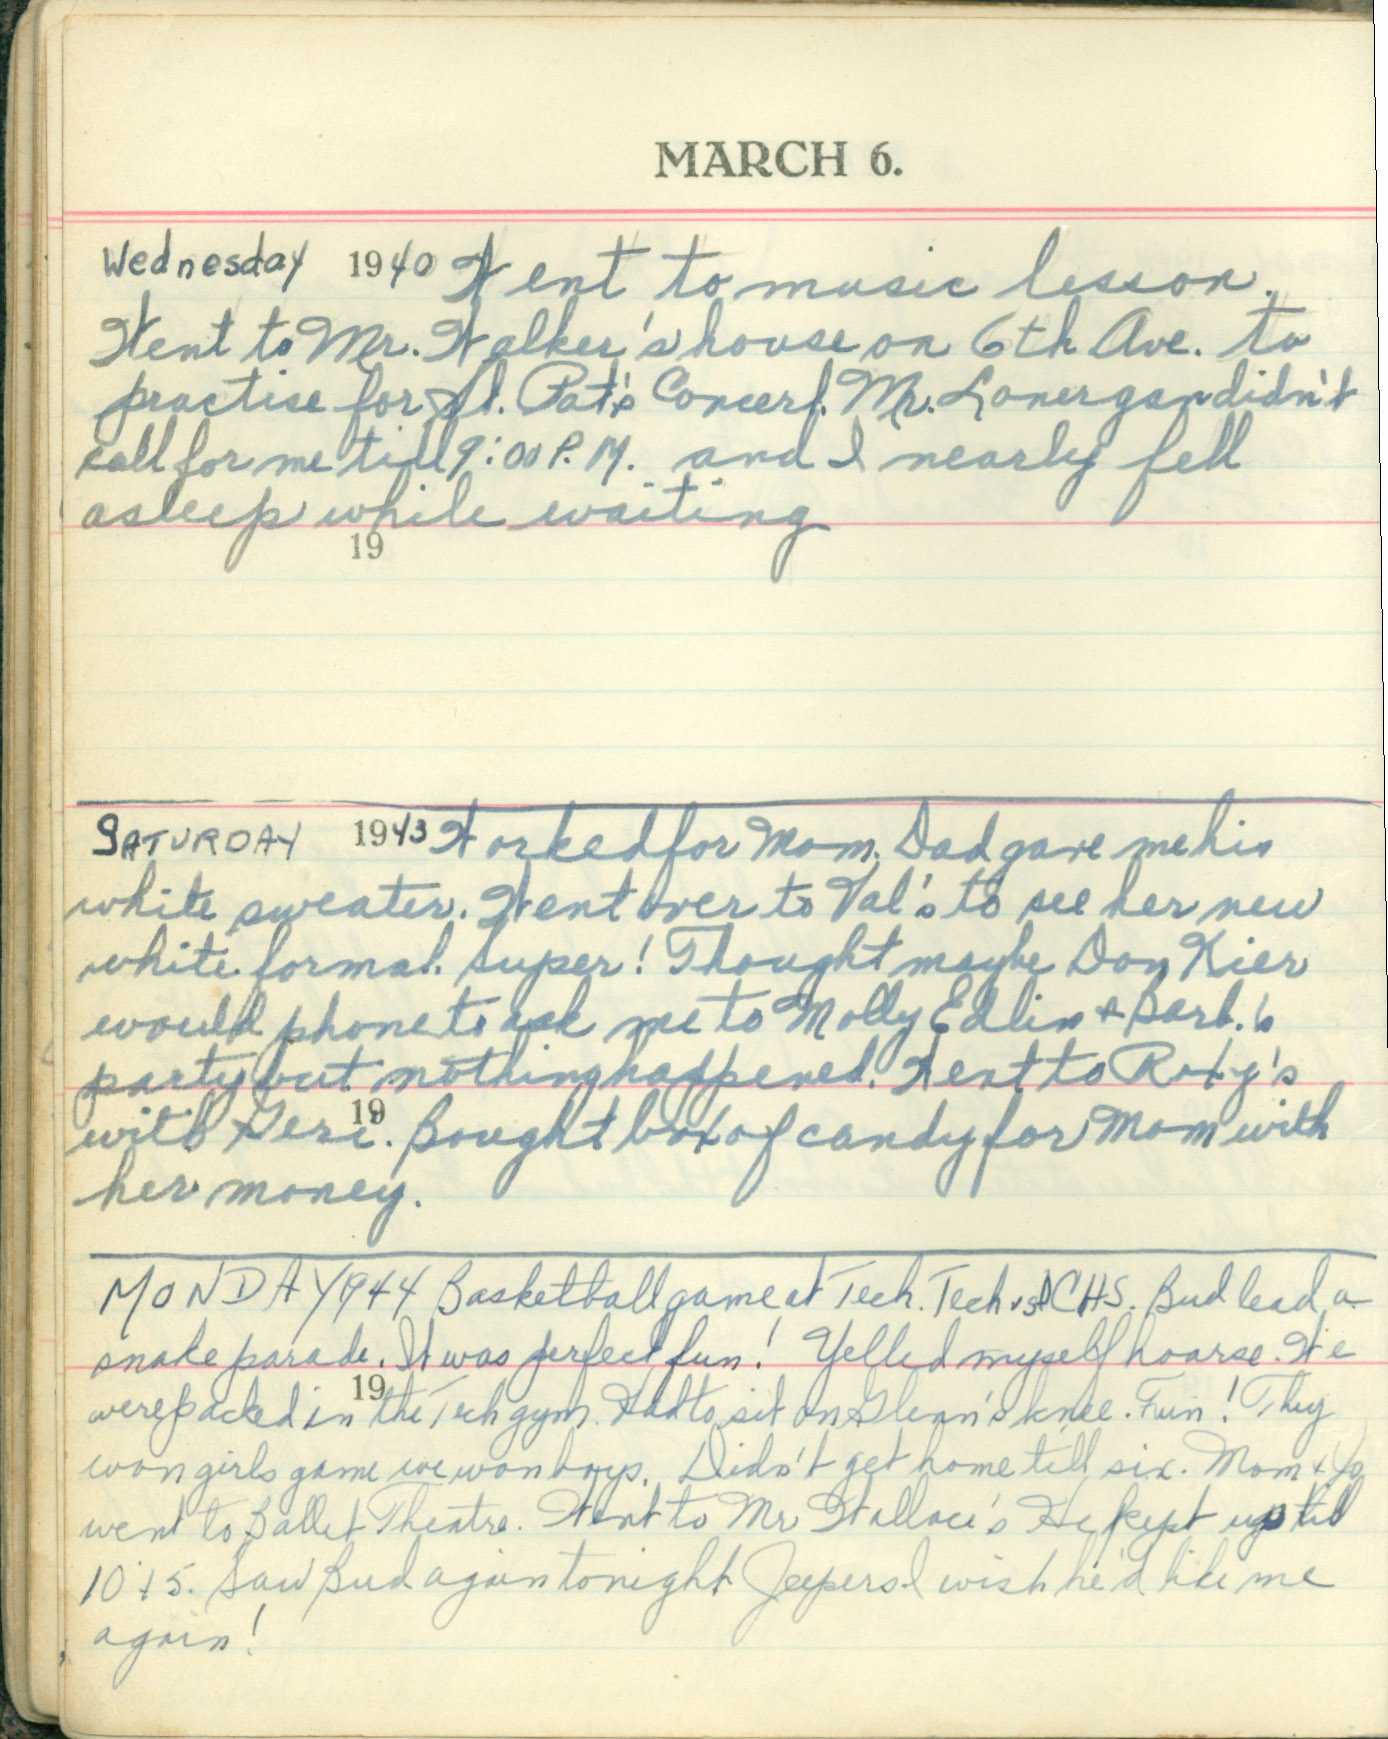 MARCH 6.
Wednesday 1940 Went to music lesson.
Went to Mr. Walker's house on 6th Ave. to
practise for St. Pat's Concert. Mr. Lonergan didn't
call for me till 9:00 P.M. and I nearly fell
asleep while waiting
19
SATURDAY 1943 Worked for Mom. Dad gave me his
white sweater. Went over to Val's to see her new
white formal. Super! Thought maybe Don Kier
would phone to ask me to Molly Edlin + Barb.'s
party but nothing happened. Went to Roxy's
19
with Geri. Bought box of candy for Mom with
her money.
MONDAY 1944 Basketball game at Tech. Tech vs CHS. Bud lead a
snake parade. It was perfect fun! Yelled myself hoarse. We
19
were packed in the Tech gym. Had to sit on Glenn's knee. Fun! They
won girls game we won boys. Didn't get home till six. Mom + Yo
went to Ballet Theatre. Went to Mr Wallace's He kept up till
10:15. Saw Bud again tonight Jeepers I wish he'd like me
again!